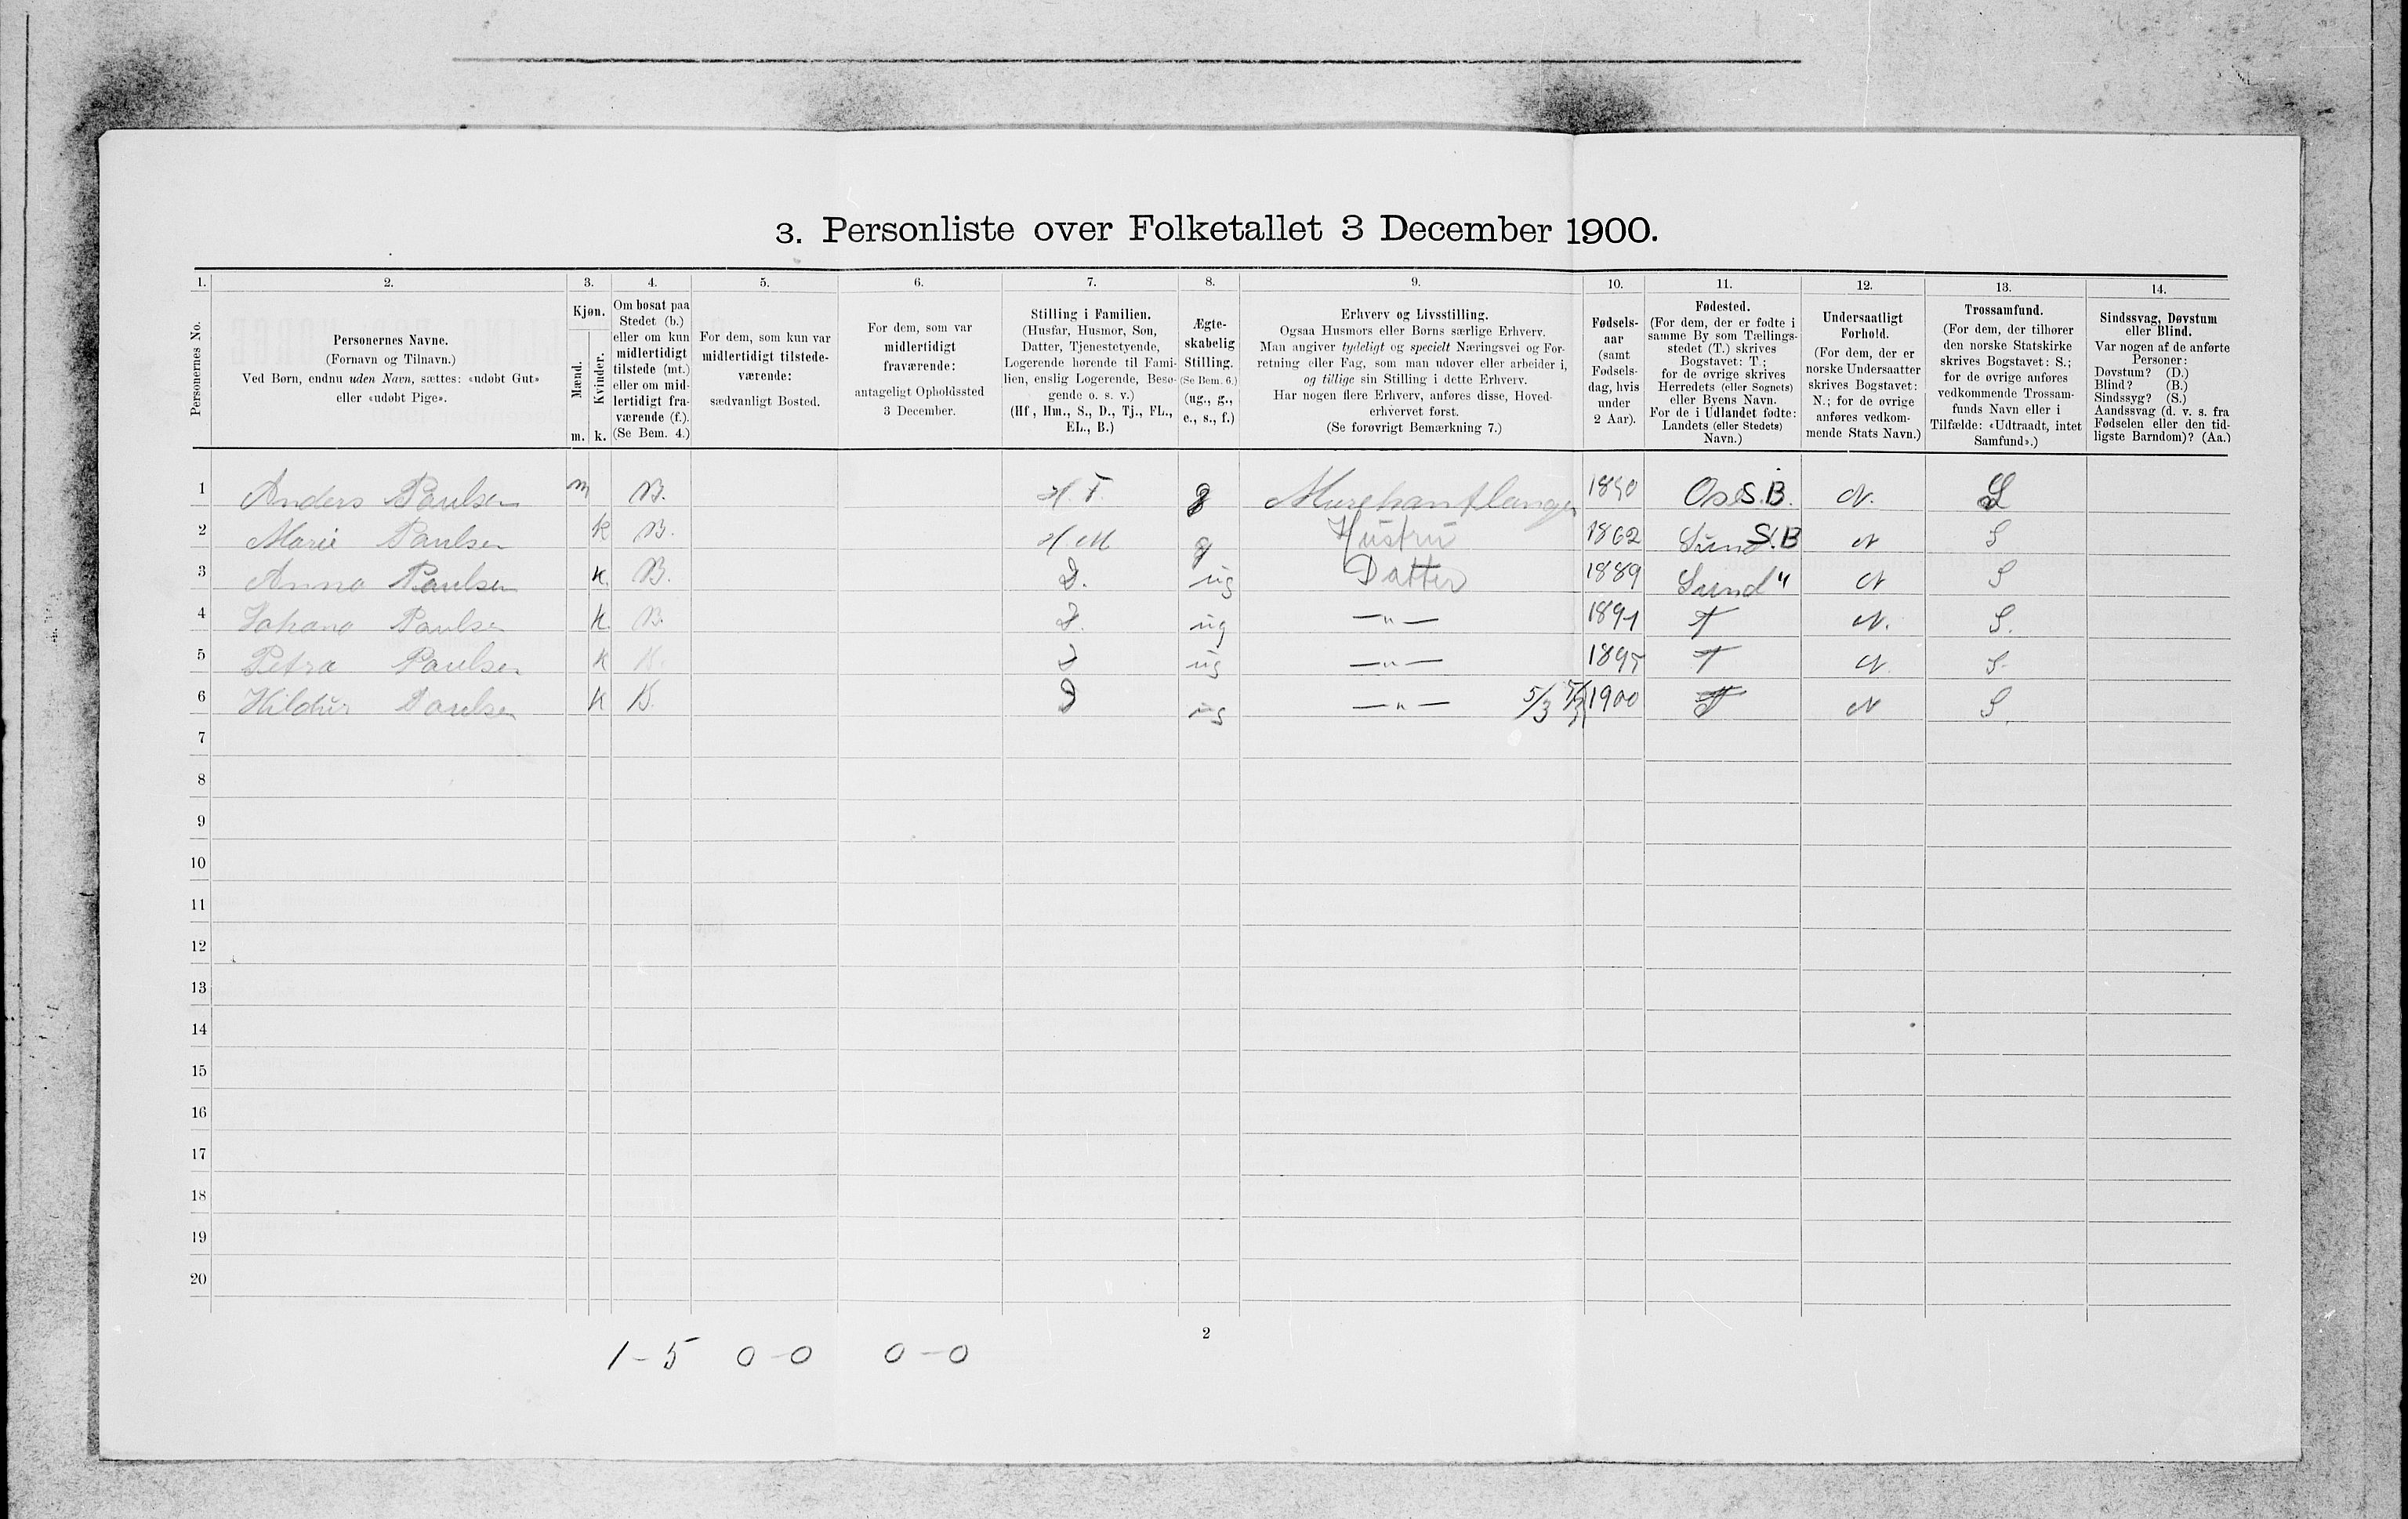 3. Personliste over Folketallet 3 December 1900.
1. 2. 3. 4. 5. 6. 7. 8. 9. 10. 11. 12. 13. 14.
Personernes No.
Personernes Navne.
(Fornavn og Tilnavn.)
Ved Børn, endnu uden Navn, sættes: «udøbt Gut»
eller «udøbt Pige».
Kjøn.
Mænd.
Kvinder.
m. k.
Om bosat paa
Stedet (b.)
eller om kun
midlertidigt
tilstede (mt.)
eller om mid-
lertidigt fra-
værende (f.).
(Se Bem. 4.)
For dem, som kun var
midlertidigt tilstede-
værende:
sædvanligt Bosted.
For dem, som var
midlertidigt
fraværende:
antageligt Opholdssted
3 December.
Stilling i Familien.
(Husfar, Husmor, Søn,
Datter, Tjenestetyende,
Logerende hørende til Fami-
lien, enslig Logerende, Besø-
gende o. s. v.)
(Hf., Hm., S., D., Tj., FL.,
EL., B.)
Ægte-
skabelig
Stilling.
(Se Bem. 6.)
(ug., g.,
e., s., f.)
Erhverv og Livsstilling.
Ogsaa Husmors eller Børns særlige Erhverv.
Man angiver tydeligt og specielt Næringsvei og For-
retning eller Fag, som man udøver eller arbeider i,
og tillige sin Stilling i dette Erhverv.
Har nogen flere Erhverv, anføres disse, Hoved-
erhvervet først.
(Se forøvrigt Bemærkning 7.)
Fødsels-
aar
(samt
Fødsels-
dag, hvis
under
2 Aar).
Fødested.
(For dem, der er fødte i
samme By som Tællings-
stedet (T.) skrives
Bogstavet: T.;
for de øvrige skrives
Herredets (eller Sognets)
eller Byens Navn.
For de i Udlandet fødte:
Landets (eller Stedets)
Navn.)
Undersaatligt
Forhold.
(For dem, der er
norske Undersaatter
skrives Bogstavet:
N.; for de øvrige
anføres vedkom-
mende Stats Navn.)
Trossamfund.
(For dem, der tilhører
den norske Statskirke
skrives Bogstavet: S.;
for de øvrige anføres
vedkommende Trossam-
funds Navn eller i
Tilfælde: «Udtraadt, intet
Samfund».)
Sindssvag, Døvstum
eller Blind.
Var nogen af de anførte
Personer:
Døvstum? (D.)
Blind? (B.)
Sindssyg? (S.)
Aandssvag (d. v. s. fra
Fødselen eller den tid-
ligste Barndom)? (Aa.)
1 Anders Paulsen m B. H.F. g N. S
2 Marie Paulsen k B. H M g Hustru 1862 Sund S.B N S
3 Anna Paulsen k. B. D. ug Datter 1889 Sund " N S
4 Johana Paulsen k. B. D. ug —"— 1891 T N. S.
5 Petra Paulsen k B. D ug —"— 1895 T N. S.
6 Hildur Paulsen k B. D ug —"— 5/3 1900 T N S.
7
8
9
10
11
12
13
14
15
16
17
18
19
20
2
1-5 0-0 0-0